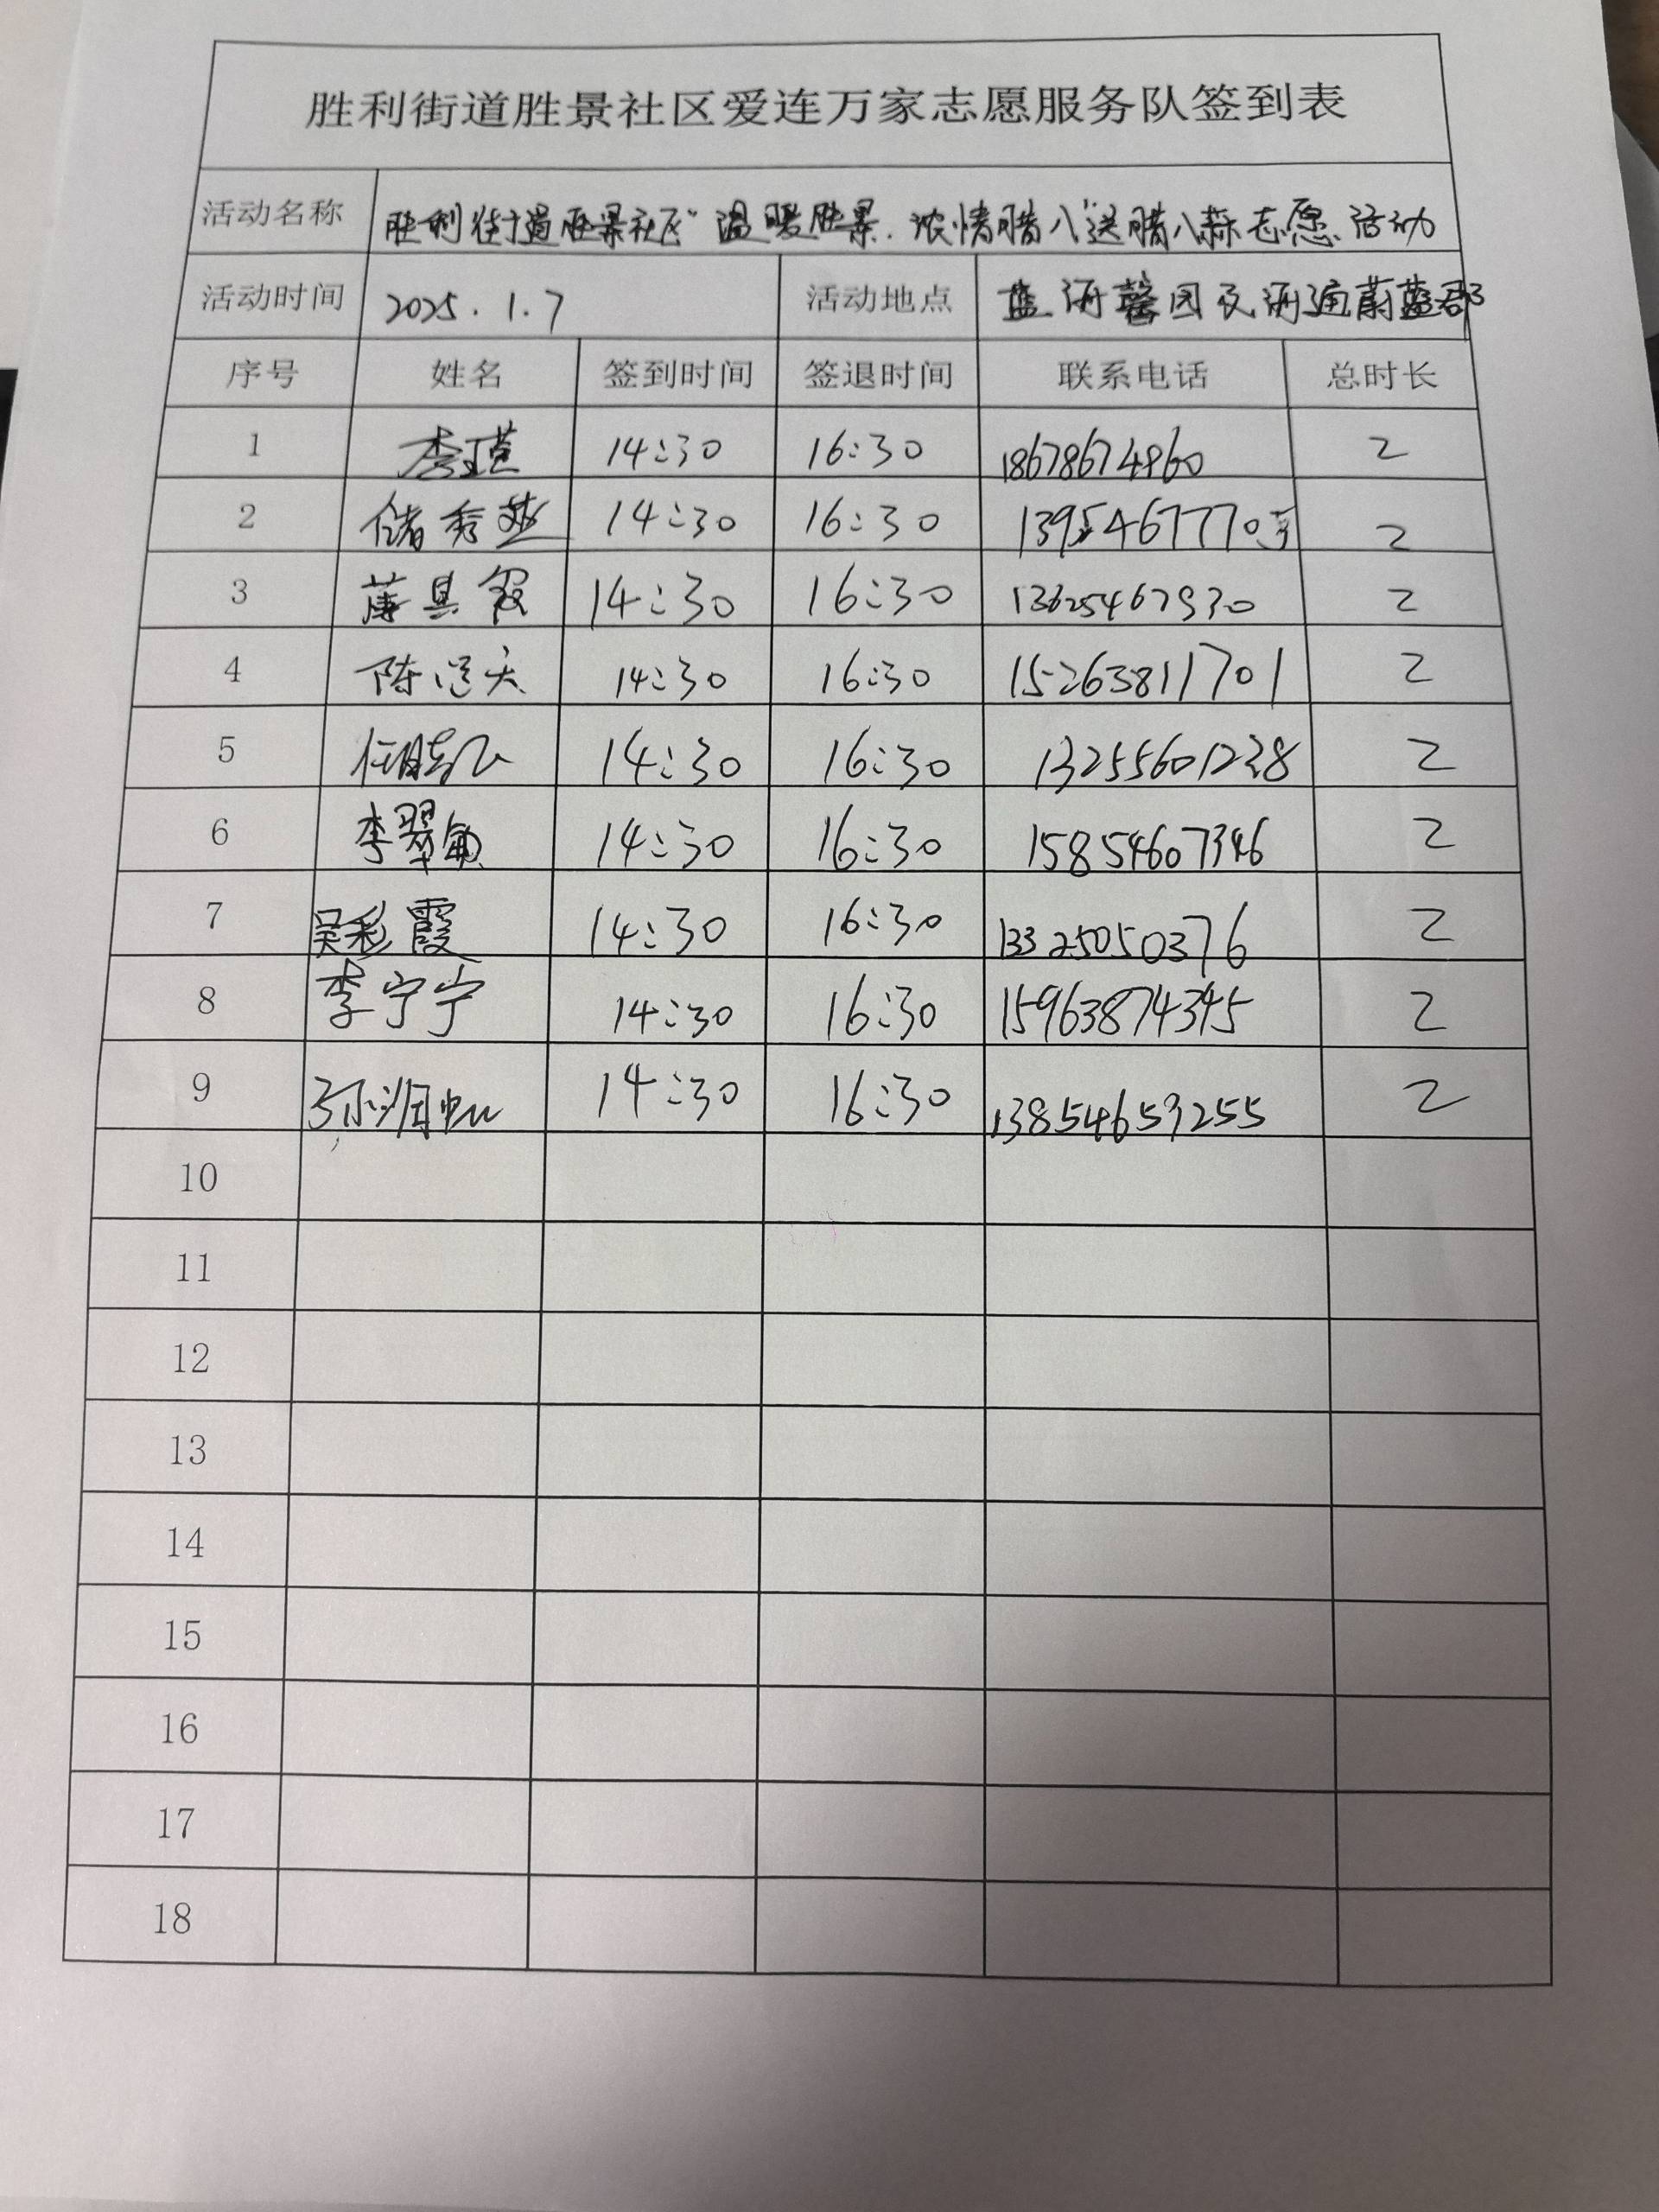 胜利街道胜景社区爱连万家志愿服务队签到表
活动名称 胜利街道胜景社区“温暖胜景.浓情腊八”送腊八蒜志愿活动
活动时间 2025.1.7 活动地点 蓝海馨园及海通蔚蓝郡
序号 姓名 签到时间 签退时间 联系电话 总时长
1 李瑾 14:30 16:30 18678674860 2
2 储秀燕 14:30 16:30 2
3 14:30 16:30 13625467930 2
4 陈 14:30 16:30 15263811701 2
5 任 14:30 16:30 13255601238 2
6 李翠敏 14:30 16:30 15854607346 2
7 吴彩霞 14:30 16:30 13325050376 2
8 李宁宁 14:30 16:30 15963874345 2
9 14:30 16:30 13854653255 2
10
11
12
13
14
15
16
17
18